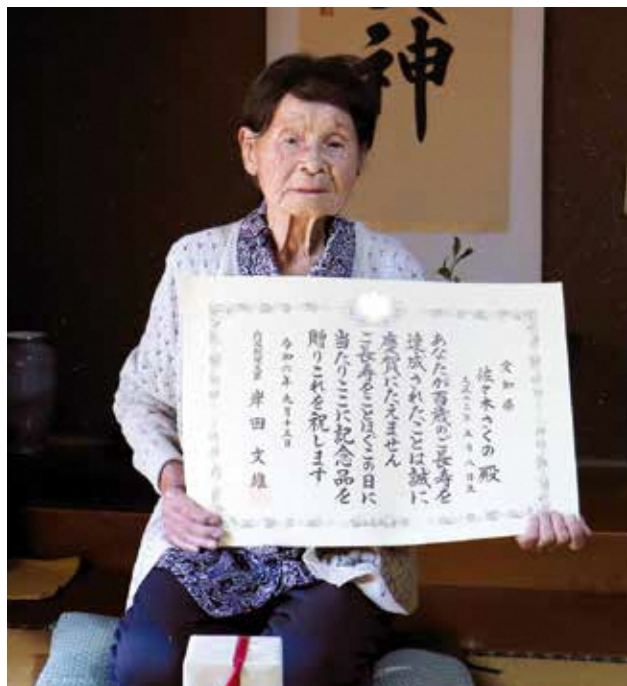 神
愛知県
佐々木さくの 殿
大正十三年 五月 八日生
あなたが百歳のご長寿を
達成されたことは誠に
慶賀にたえません
ご長寿をことほぐこの日に
当たりここに記念品を
贈りこれを祝します
令和六年 九月十五日
内閣総理大臣 岸田文雄